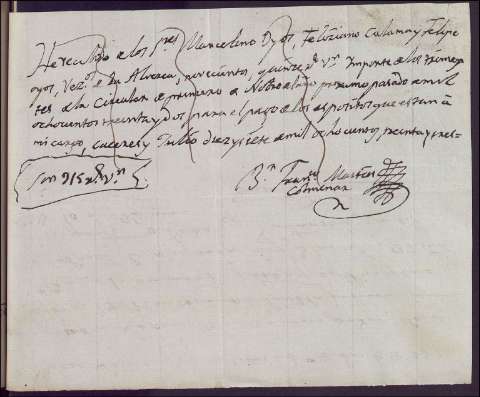 He recibido de los Sres Marcelino Oyos, Feliziano Calama y Felipe
oyos, Vezos de La Alverca, novecientos, quinze rs Vn Importe de los
tes de la Circular de primero de Nobre del año procsimo pasado de mil
ochocientos treinta y dos para el pago de los espositos que estan a
mi cargo, Caceres y Julio diez y siete de mil ochocientos treinta y tres=
Son 915 rs Vn
Bn Franco Martin
Colmenar